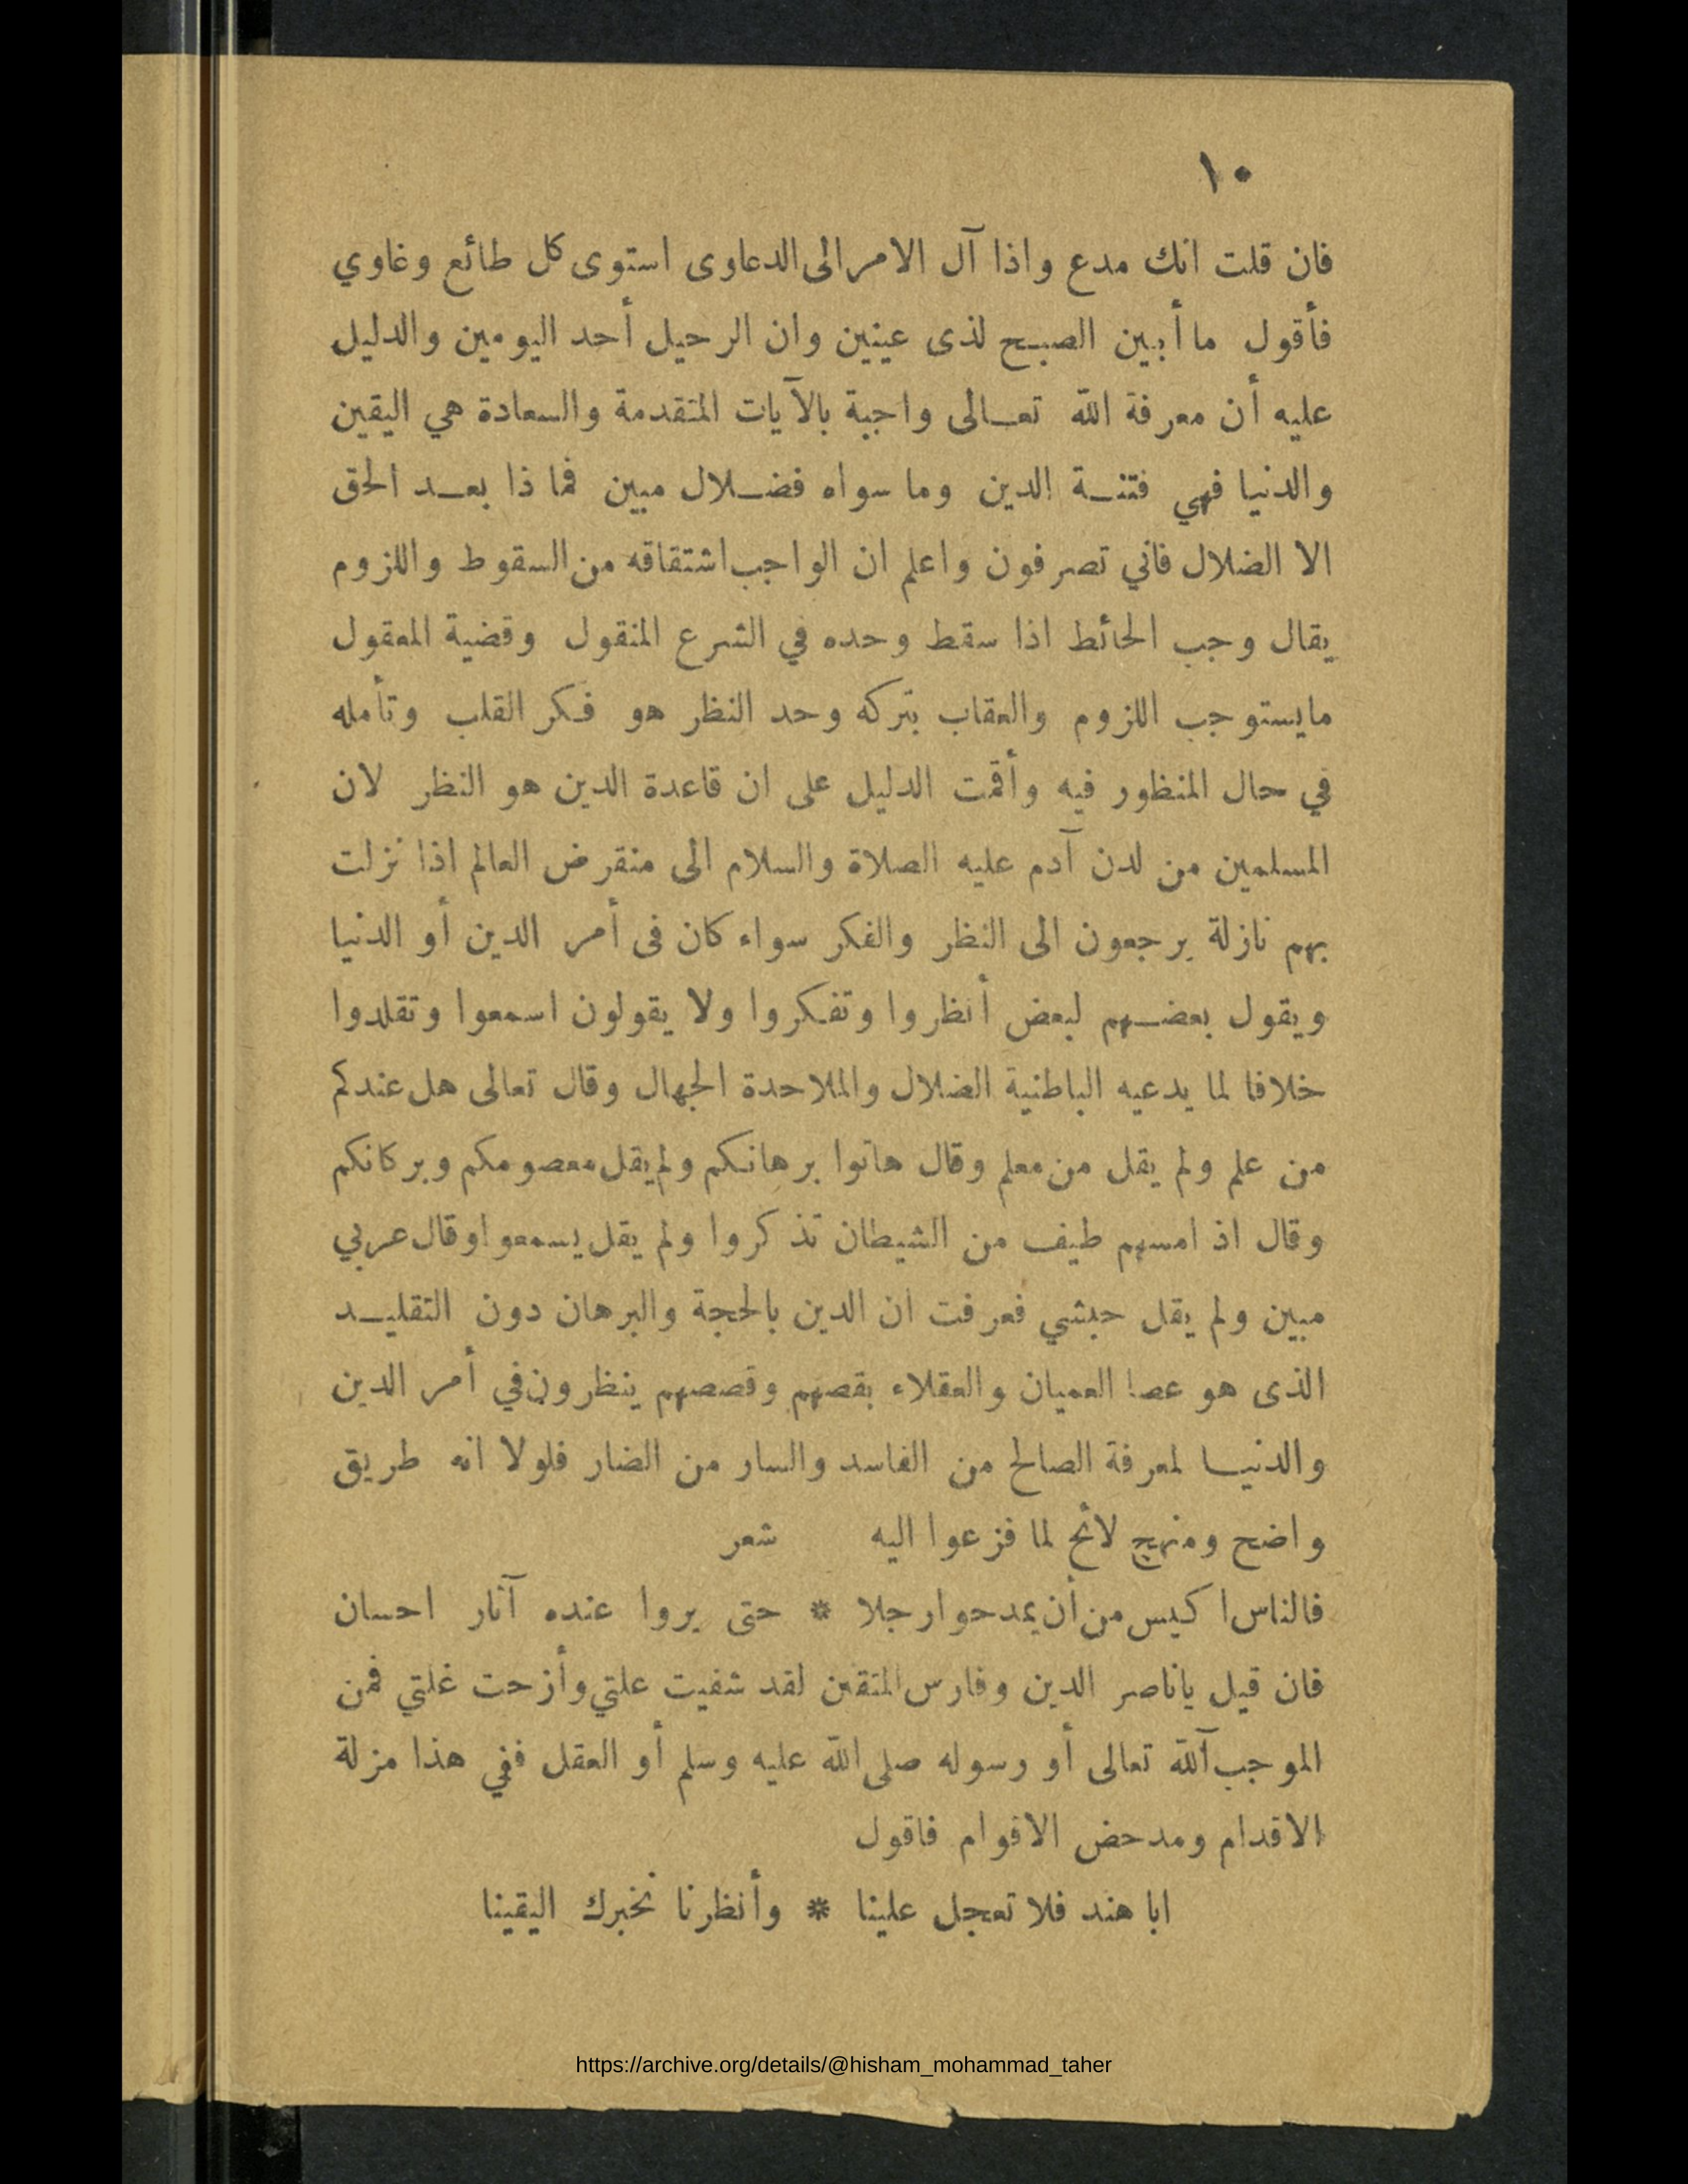 ١٠
فان قلت انك مدع واذا آل الامر الى الدعاوى استوى كل طائع وغاوي
فأقول ما أبين الصبح لذى عينين وان الرحيل أحد اليومين والدليل
عليه أن معرفة الله تعالى واجبة بالآيات المتقدمة والسعادة هي اليقين
والدنيا فهي فتنة الدين وما سواه فضلال مبين فماذا بعد الحق
الا الضلال فاني تصرفون واعلم ان الواجب اشتقاقه من السقوط واللزوم
يقال وجب الحائط اذا سقط وحده في الشرع المنقول وقضية المعقول
مايستوجب اللزوم والعقاب بتركه وحد النظر هو فكر القلب وتأمله
في حال المنظور فيه وأقمت الدليل على ان قاعدة الدين هو النظر لان
المسلمين من لدن آدم عليه الصلاة والسلام الى منقرض العالم اذا نزلت
بهم نازلة يرجعون الى النظر والفكر سواء كان فى أمر الدين أو الدنيا
ويقول بعضهم لبعض أنظروا وتفكروا ولا يقولون اسمعوا وتقلدوا
خلافا لما يدعيه الباطنية الضلال والملاحدة الجهال وقال تعالى هل عندكم
من علم ولم يقل من معلم وقال هاتوا برهانكم ولم يقل معصومكم وبركانكم
وقال اذ امسهم طيف من الشيطان تذكروا ولم يقل يسمعوا وقال عربي
مبين ولم يقل حبشي فعرفت ان الدين بالحجة والبرهان دون التقليد
الذى هو عصا العميان والعقلاء بقصهم وقصصهم ينظرون في أمر الدين
والدنيا لمعرفة الصالح من الفاسد والسار من الضار فلولا انه طريق
واضح ومنهج لائح لما فزعوا اليه شعر
فالناس اكيس من أن يمدحوا رجلا * حتى يروا عنده آثار احسان
فان قيل ياناصر الدين وفارس المتقين لقد شفيت علتي وأزحت غلتي فمن
الموجب آلله تعالى أو رسوله صلى الله عليه وسلم أو العقل ففي هذا مزلة
الاقدام ومدحض الاقوام فاقول
ابا هند فلا تعجل علينا * وأنظرنا نخبرك اليقينا
https://archive.org/details/@hisham_mohammad_taher